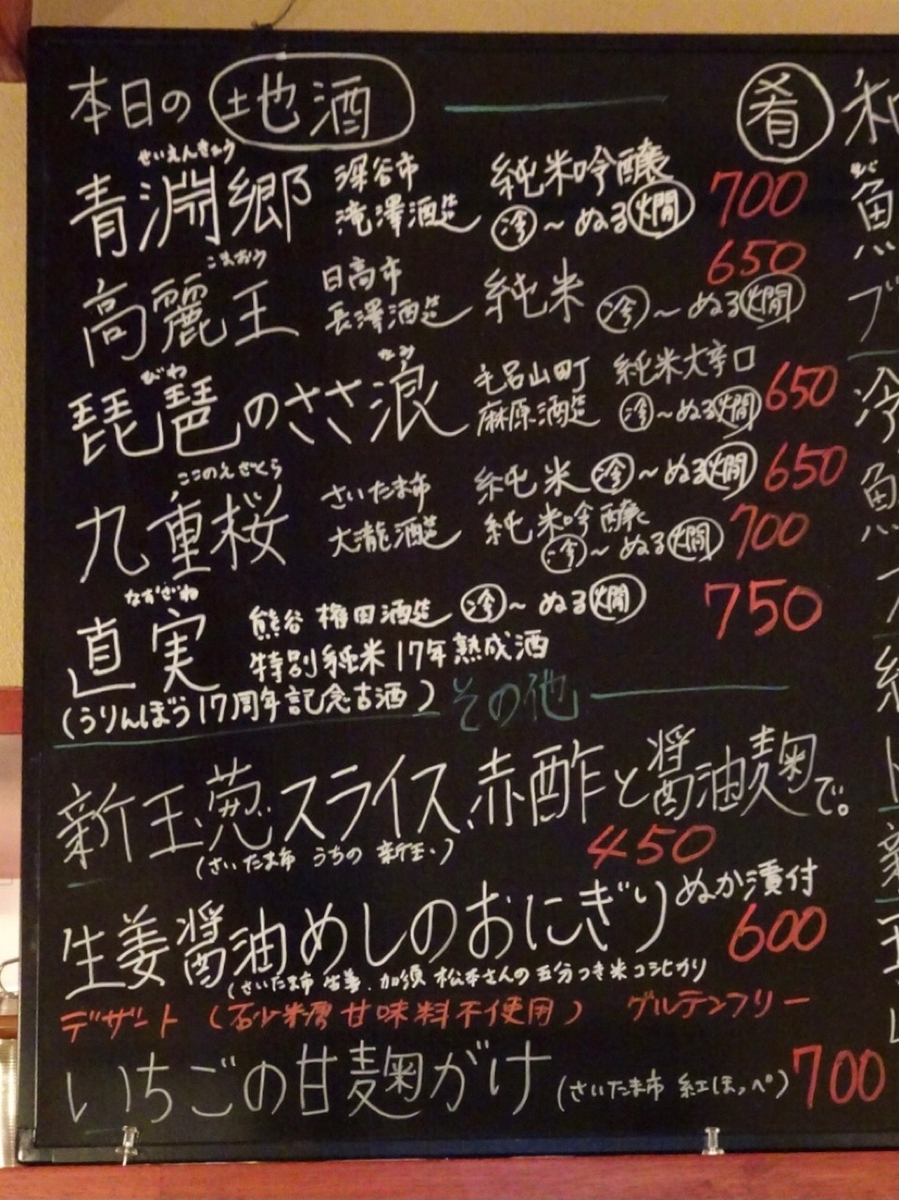 本日の 地酒
せいえんきょう
青淵郷 深谷市 滝澤酒造 純米吟醸 冷〜ぬる燗 700
こまおう
高麗王 日高市 長澤酒造 純米 冷〜ぬる燗 650
びわ なみ
琵琶のささ浪 毛呂山町 麻原酒造 純米大辛口 冷〜ぬる燗 650
ここのえざくら
九重桜 さいたま市 大瀧酒造 純米 冷〜ぬる燗 650
純米吟醸 冷〜ぬる燗 700
なおざね
直実 熊谷 権田酒造 冷〜ぬる燗 750
特別純米 17年熟成酒
(うりんぼう17周年記念古酒)
その他
新玉葱スライス、赤酢と醤油麹で。
(さいたま市 うちの 新玉) 450
生姜醤油めしのおにぎり ぬか漬付
(さいたま市 生姜、加須 松本さんの五分つき米コシヒカリ 600
デザート (砂糖甘味料不使用) グルテンフリー
いちごの甘麹がけ (さいたま市 紅ほっぺ) 700
肴
魚
ブ
冷
魚